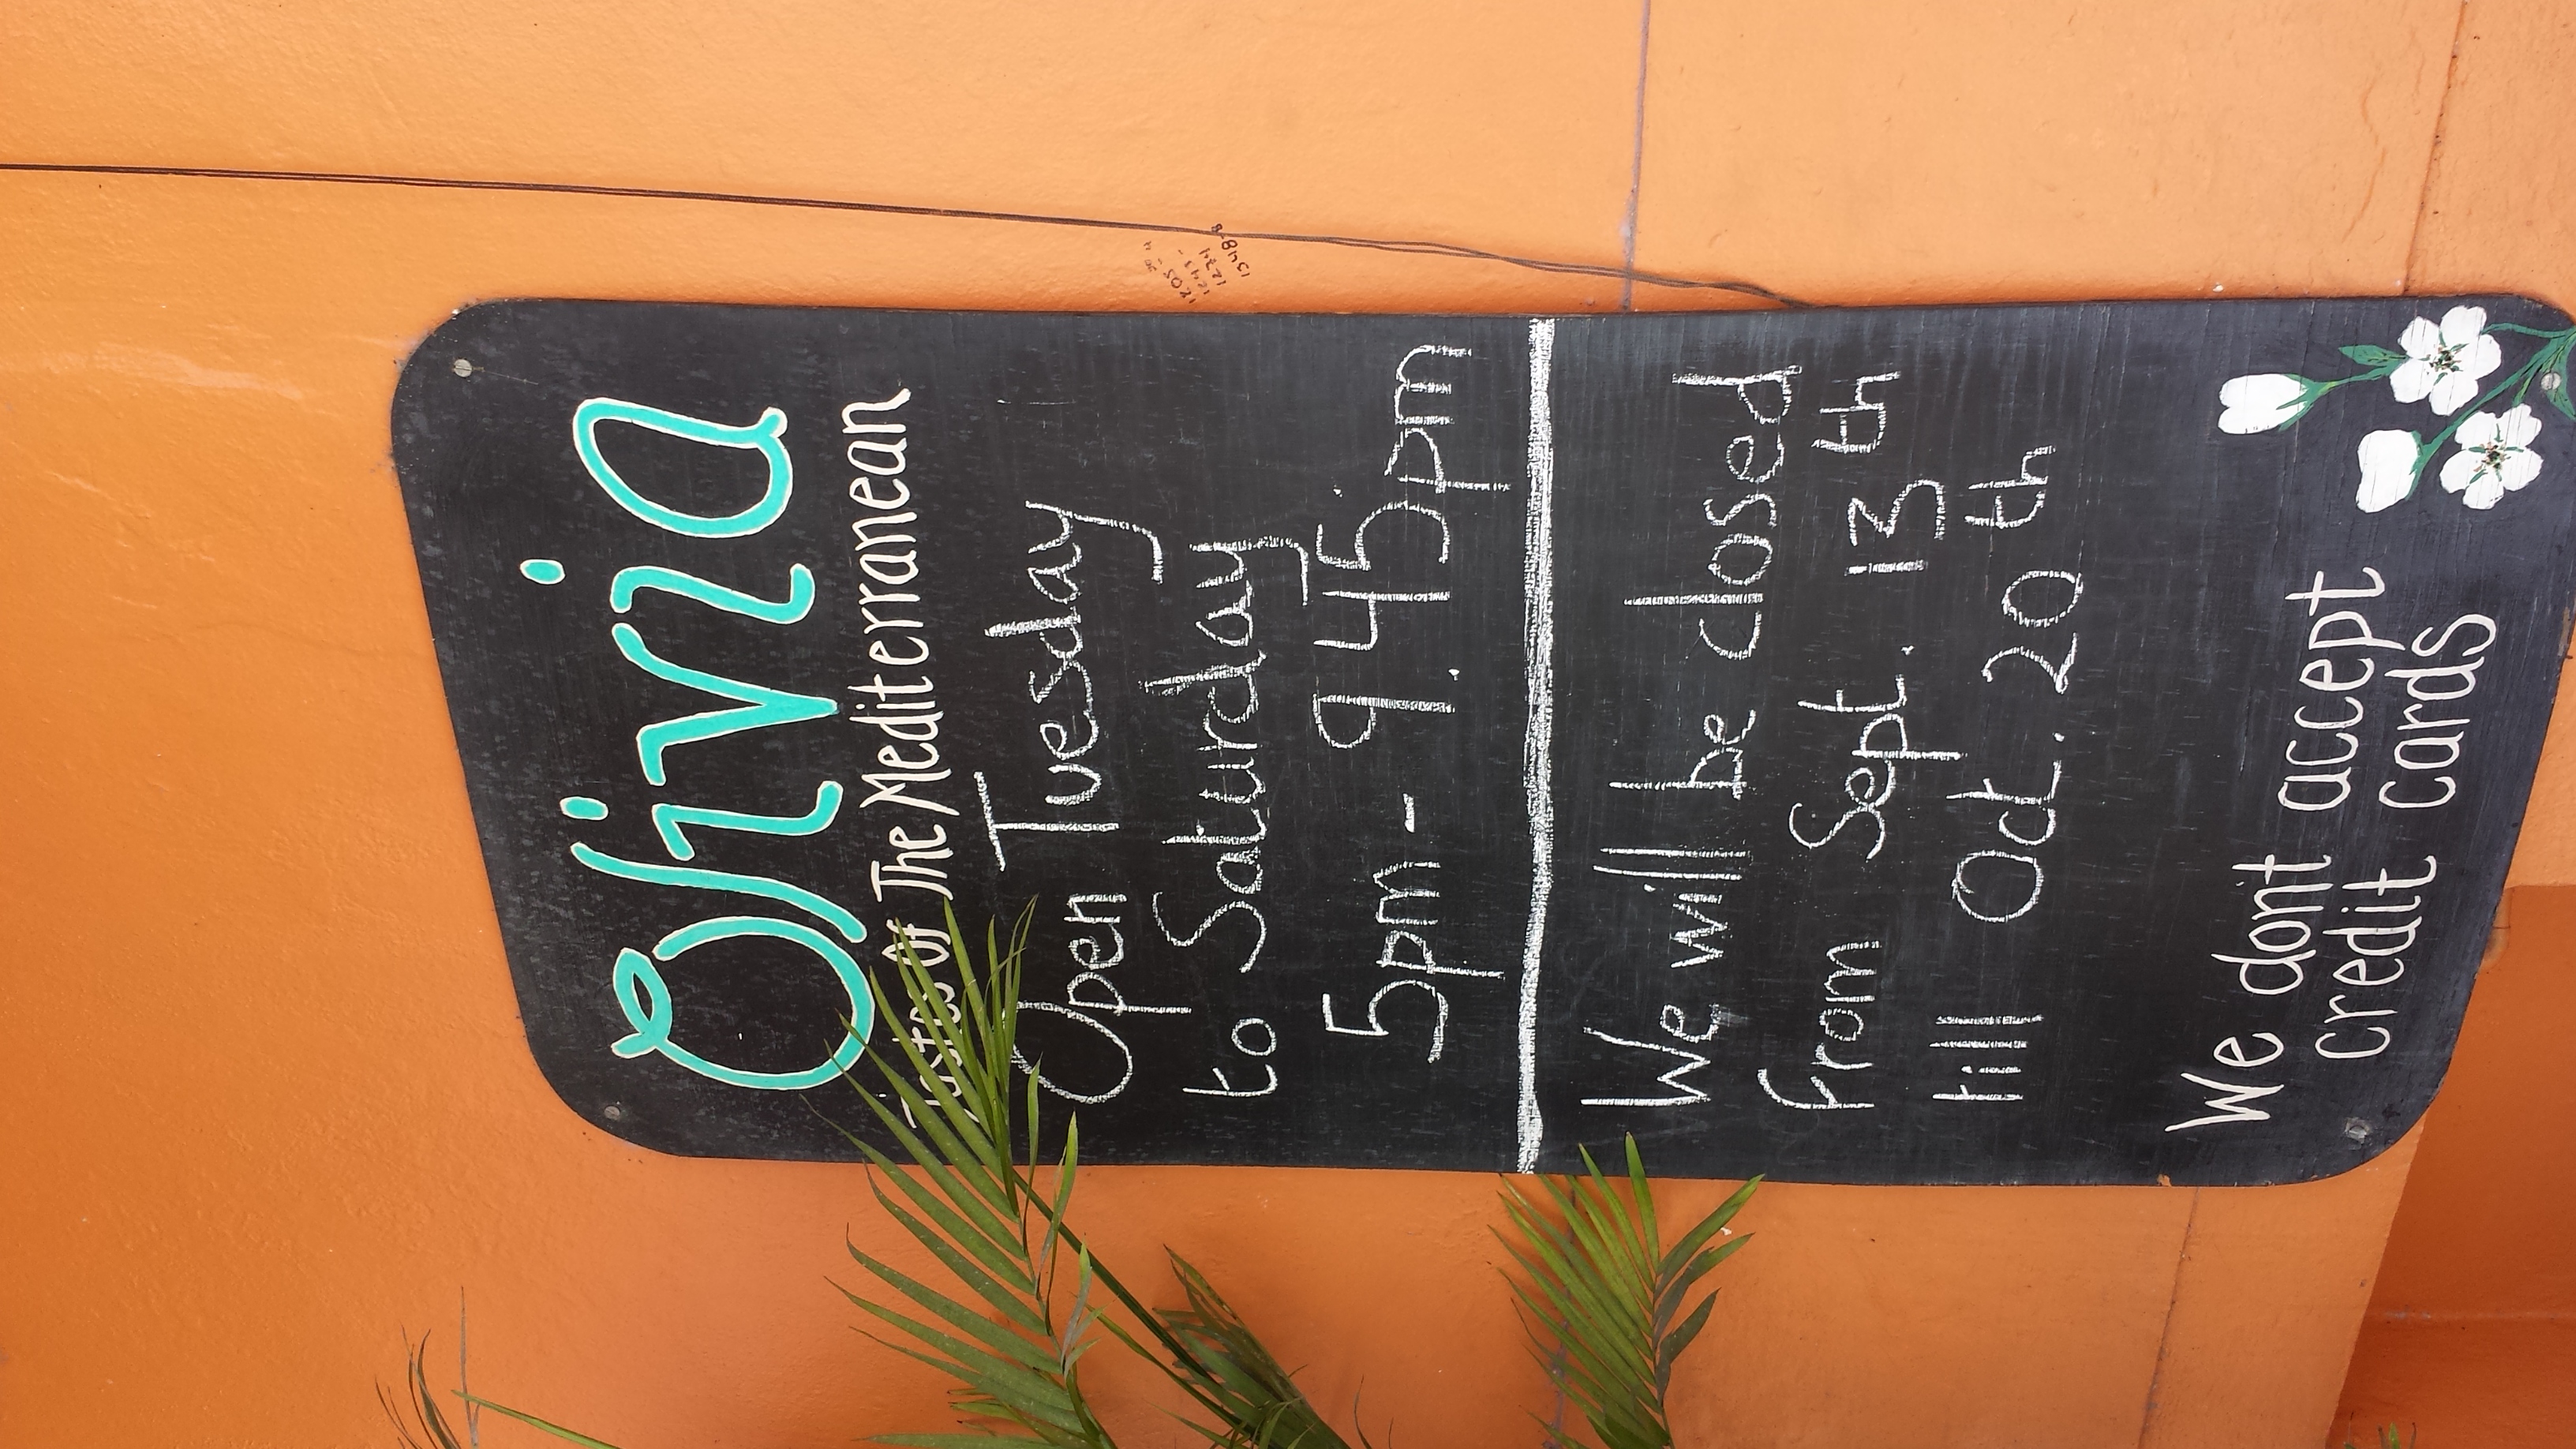 Olivia
Tastes Of The Mediterranean
Open Tuesday
to Saturday
5pm - 9.45pm
We will be closed
from Sept. 13th
till Oct. 20th
We dont accept
credit cards